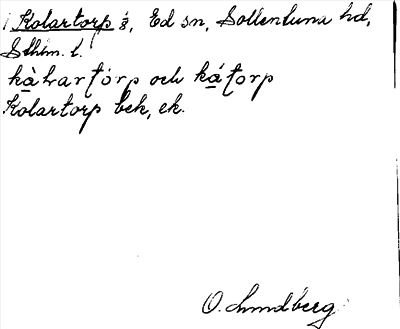 Kolartorp 1/8, Ed sn, Sollentuna hd,
Sthlm. l.
kàlrartórp och kátorp
Kolartorp bek, ek.
O. Lundberg